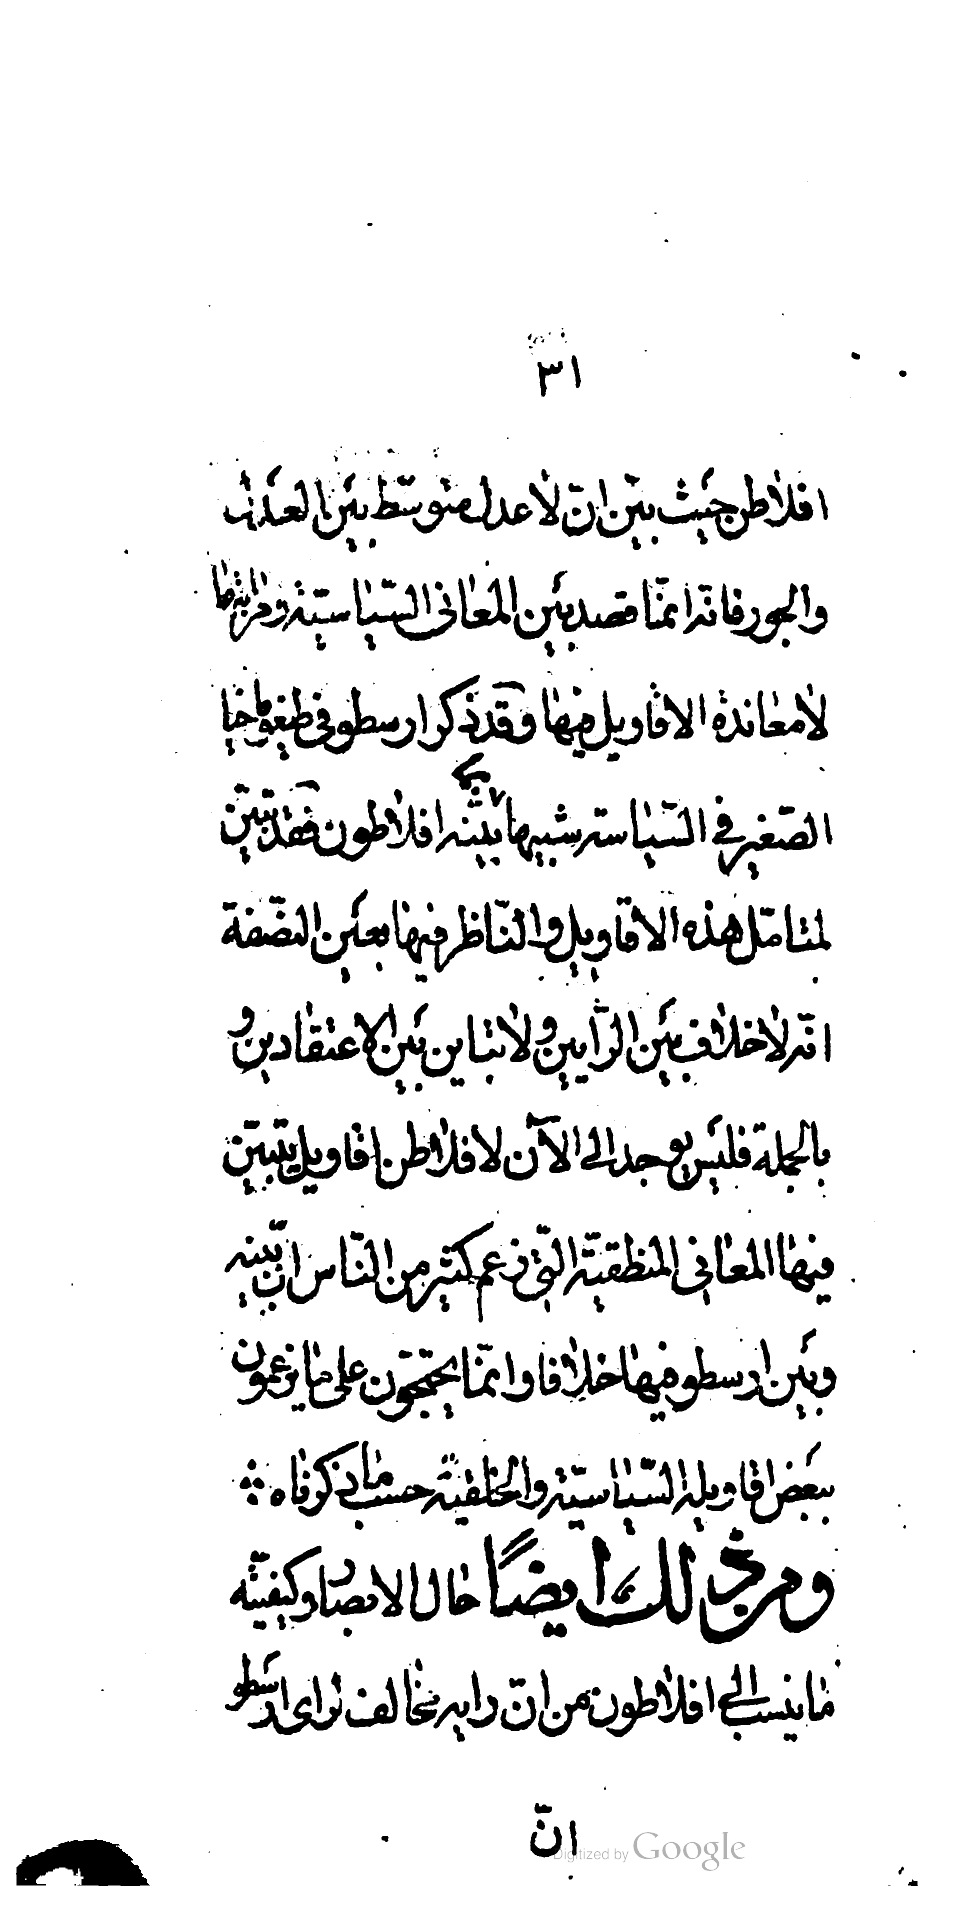 ٣١
افلاطن حيث بيّن ان لا عدل متوسّط بين العدل
والجور فانه انمّا قصد بين المعانى السّياسيّة ومراتبها
لا معاندة الاقاويل فيها وقد ذكر ارسطو فى طيغوماخيا
الصّغير فى السّياسة شبيها بما بيّنه افلاطون فقد تبيّن
لمتامّل هذه الاقاويل والنّاظر فيها بعين النّصفة
انّه لا خلاف بين الرّايين ولا تباين بين الاعتقادين و
بالجملة فليس يوجد الى الآن لافلاطن اقاويل يتبيّن
فيها المعانى المنطقيّة الّتى زعم كثير من النّاس ان بينه
وبين ارسطو فيها خلافا وانمّا يحتجّون على ما يزعمون
ببعض اقاويله السّياسيّة والخلقيّة حسب ما ذكرناه
ومن ذلك ايضًا حال الابصار وكيفيّته
ما ينسب الى افلاطون من انّ رايه مخالف لراى ارسطو
انّ
Digitized by Google